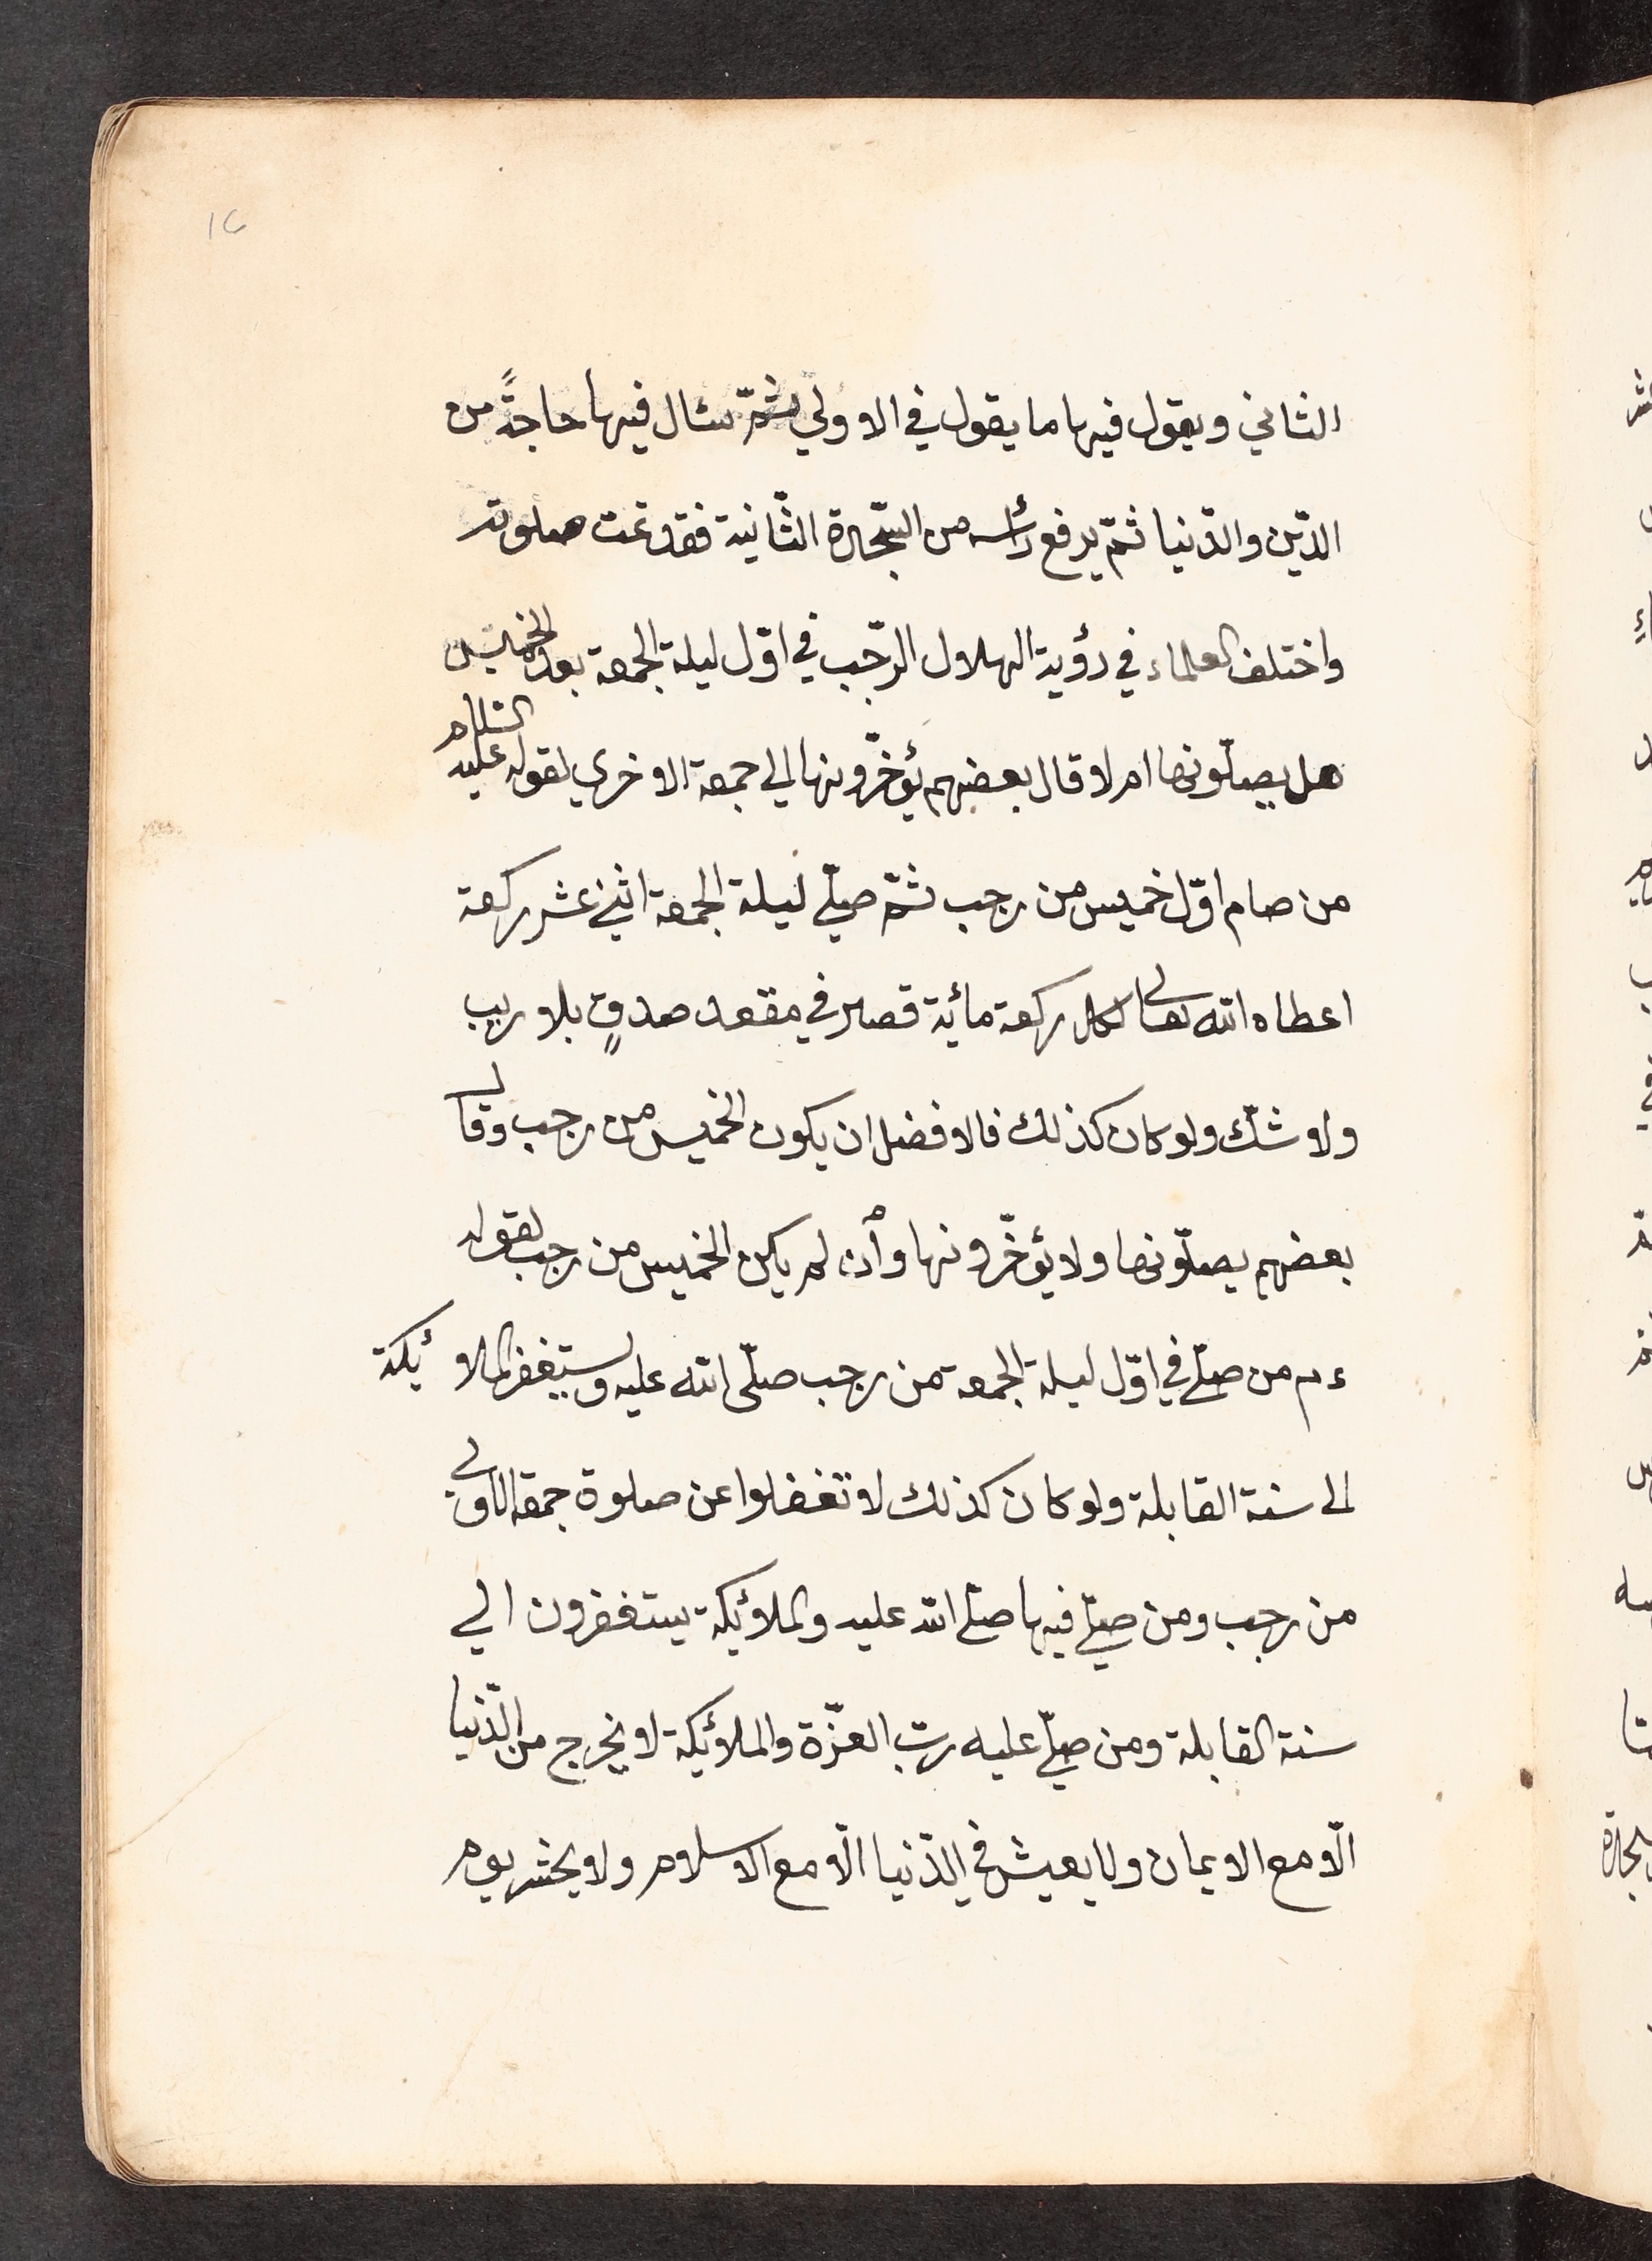 16
الثاني ويقول فيها ما يقول في الاولي ثمّ سئال فيها حاجةً من
الدّين والدّنيا ثمّ يرفع رأسه من السّجدة الثّانية فقد تمت صلوته
واختلف العلماء في رؤية الهلال الرّجب في اوّل ليلة الجمعة بعد الخميس
هل يصلّونها ام لا قال بعضهم يؤخّرونها الي جمعة الاخري لقوله عليه السّلام
من صام اوّل خميس من رجب ثمّ صلّي ليلة الجمعة اثني عشر ركعة
اعطاه الله تعالى لكل ركعة مائة قصر في مقعد صدقٍ بلا ريب
ولا شكّ ولو كان كذلك فالافضل ان يكون الخميس من رجب وقال
بعضهم يصلّونها ولا يؤخّرونها وأن لم يكن الخميس من رجب لقوله
ءم من صلّي في اوّل ليلة الجمعة من رجب صلّى الله عليه ويستغفر الملائكة
الى سنة القابلة ولو كان كذلك لا تغفلوا عن صلوة جمعة الاولى
من رجب ومن صلّي فيها صلّى الله عليه والملائكة يستغفرون الي
سنة القابلة ومن صلّي عليه ربّ العزّة والملائكة لا يخرج من الدّنيا
الّا مع الايمان ولا يعيش في الدّنيا الّا مع الاسلام ولا يحشر يوم